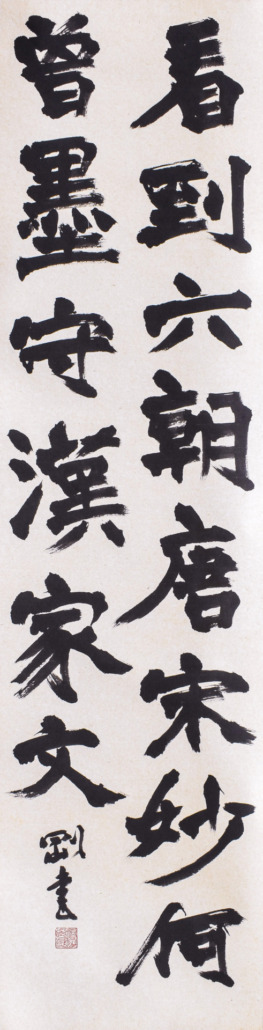 看到六朝唐宋妙何
曾墨守漢家文
剛書